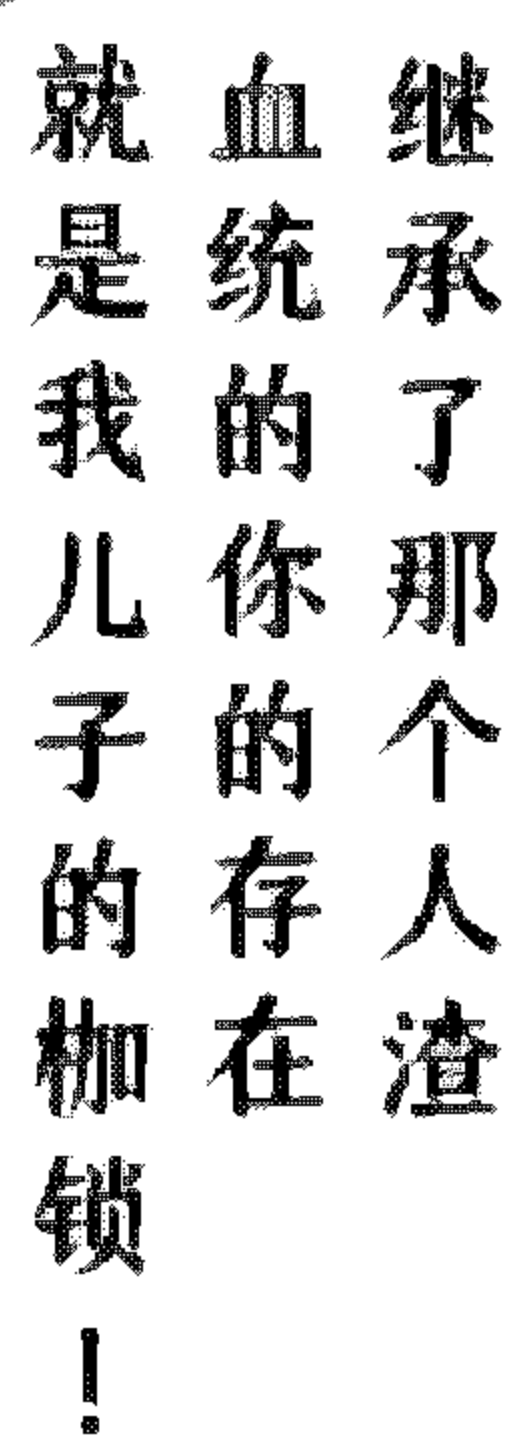 继承了那个人渣
血统的你的存在
就是我儿子的枷锁!